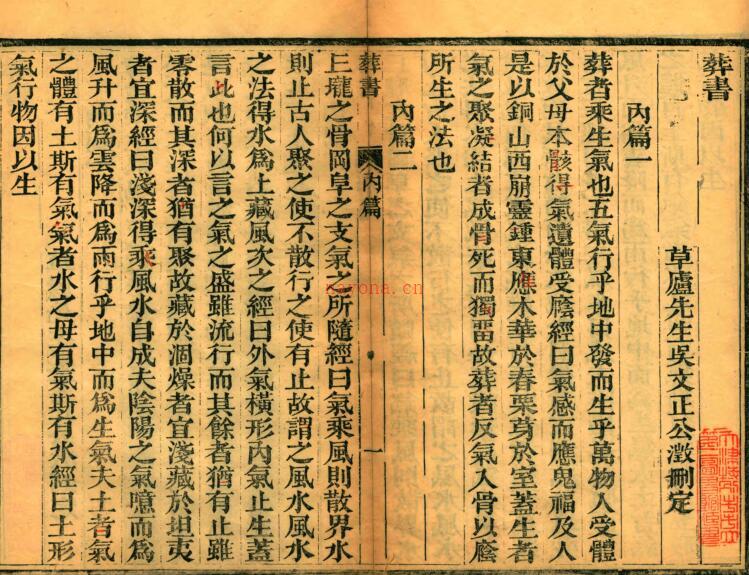 葬書
草廬先生吳文正公澂刪定
內篇一
葬者乘生氣也五氣行乎地中發而生乎萬物人受體
於父母本骸得氣遺體受廕經曰氣感而應鬼福及人
是以銅山西崩靈鍾東應木華於春栗芽於室蓋生者
氣之聚凝結者成骨死而獨畱故葬者反氣入骨以廕
所生之法也
內篇二
葬書
內篇
一
丘壠之骨岡阜之支氣之所隨經曰氣乘風則散界水
則止古人聚之使不散行之使有止故謂之風水風水
之法得水爲上藏風次之經曰外氣橫形內氣止生蓋
言此也何以言之氣之盛雖流行而其餘者猶有止雖
零散而其深者猶有聚故藏於涸燥者宜淺藏於坦夷
者宜深經曰淺深得乘風水自成夫陰陽之氣噫而爲
風升而爲雲降而爲雨行乎地中而爲生氣夫土者氣
之體有土斯有氣氣者水之母有氣斯有水經曰土形
氣行物因以生
nayona.cn